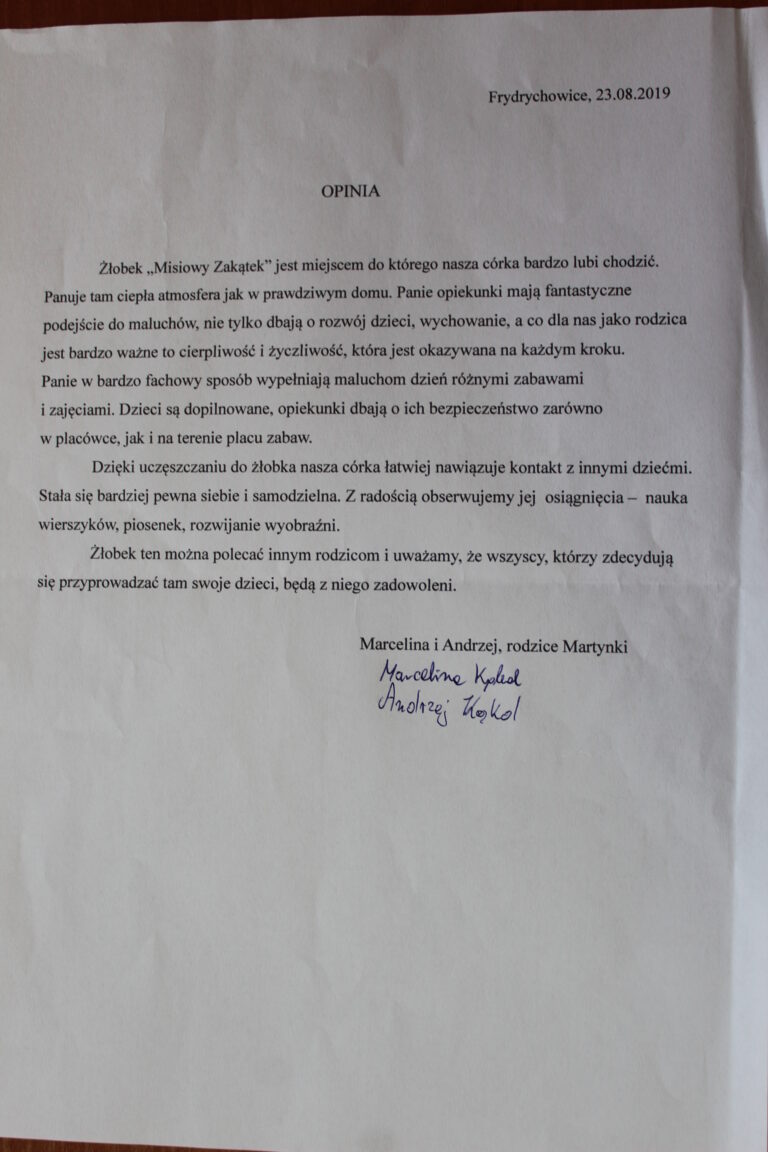 Frydrychowice, 23.08.2019
OPINIA
Żłobek „Misiowy Zakątek” jest miejscem do którego nasza córka bardzo lubi chodzić.
Panuje tam ciepła atmosfera jak w prawdziwym domu. Panie opiekunki mają fantastyczne
podejście do maluchów, nie tylko dbają o rozwój dzieci, wychowanie, a co dla nas jako rodzica
jest bardzo ważne to cierpliwość i życzliwość, która jest okazywana na każdym kroku.
Panie w bardzo fachowy sposób wypełniają maluchom dzień różnymi zabawami
i zajęciami. Dzieci są dopilnowane, opiekunki dbają o ich bezpieczeństwo zarówno
w placówce, jak i na terenie placu zabaw.
Dzięki uczęszczaniu do żłobka nasza córka łatwiej nawiązuje kontakt z innymi dziećmi.
Stała się bardziej pewna siebie i samodzielna. Z radością obserwujemy jej osiągnięcia – nauka
wierszyków, piosenek, rozwijanie wyobraźni.
Żłobek ten można polecać innym rodzicom i uważamy, że wszyscy, którzy zdecydują
się przyprowadzać tam swoje dzieci, będą z niego zadowoleni.
Marcelina i Andrzej, rodzice Martynki
Marcelina Kąkol
Andrzej Kąkol